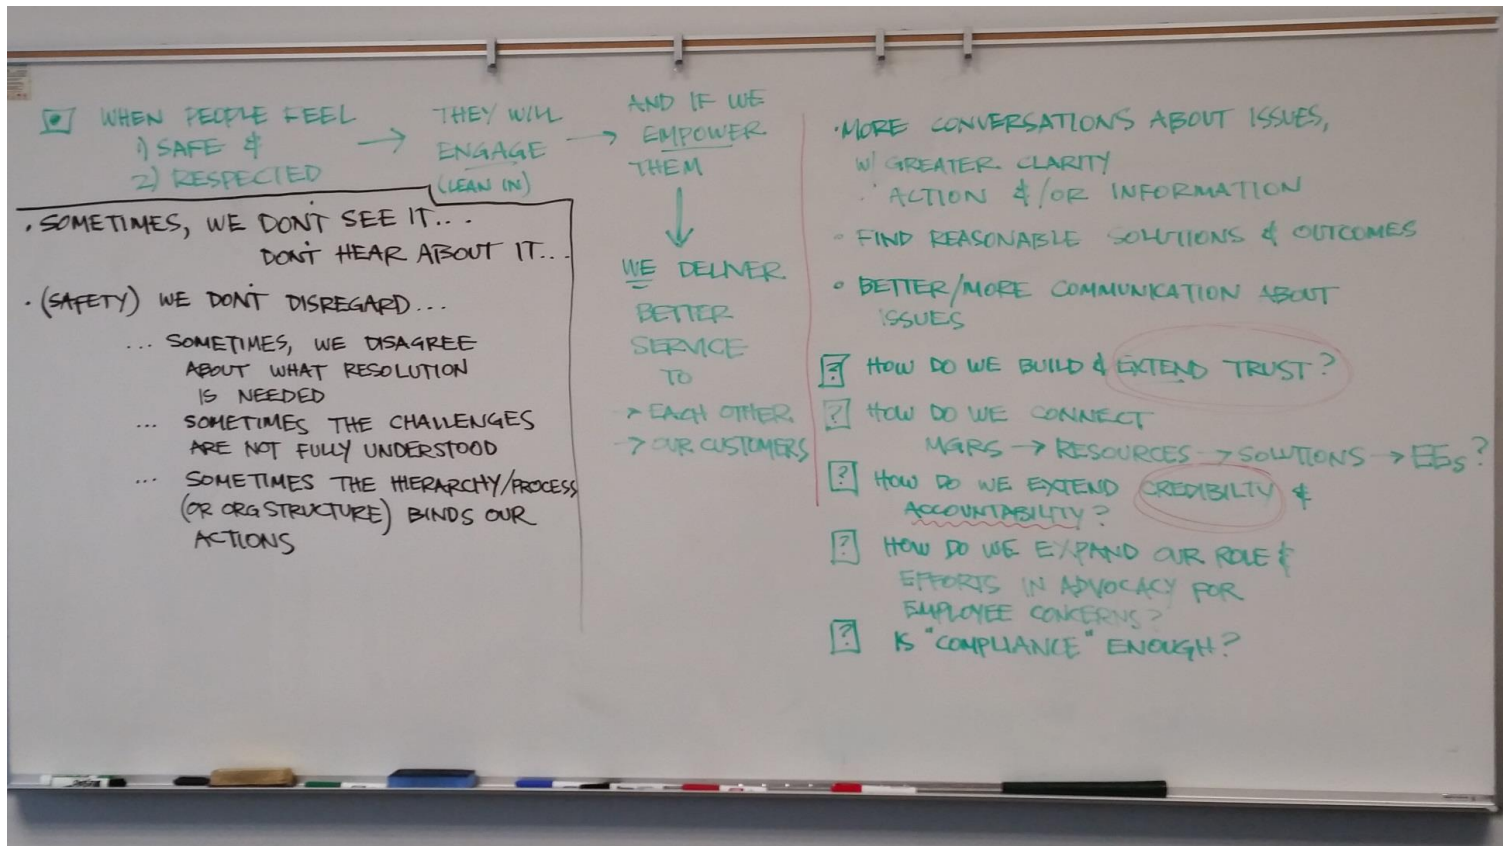 WHEN PEOPLE FEEL
1) SAFE &
2) RESPECTED
→ THEY WILL
ENGAGE
(LEAN IN)
→ AND IF WE
EMPOWER
THEM
↓
WE DELIVER
BETTER
SERVICE
TO
→ EACH OTHER
→ OUR CUSTOMERS
· SOMETIMES, WE DON'T SEE IT...
DON'T HEAR ABOUT IT...
· (SAFETY) WE DON'T DISREGARD...
... SOMETIMES, WE DISAGREE
ABOUT WHAT RESOLUTION
IS NEEDED
... SOMETIMES THE CHALLENGES
ARE NOT FULLY UNDERSTOOD
... SOMETIMES THE HIERARCHY/PROCESS
(OR ORG STRUCTURE) BINDS OUR
ACTIONS
· MORE CONVERSATIONS ABOUT ISSUES,
W/ GREATER CLARITY
· ACTION &/OR INFORMATION
· FIND REASONABLE SOLUTIONS & OUTCOMES
· BETTER/MORE COMMUNICATION ABOUT
ISSUES
? HOW DO WE BUILD & EXTEND TRUST?
? HOW DO WE CONNECT
MGRS → RESOURCES → SOLUTIONS → EEs?
? HOW DO WE EXTEND CREDIBILTY &
ACCOUNTABILITY?
? HOW DO WE EXPAND OUR ROLE &
EFFORTS IN ADVOCACY FOR
EMPLOYEE CONCERNS?
? IS "COMPLIANCE" ENOUGH?